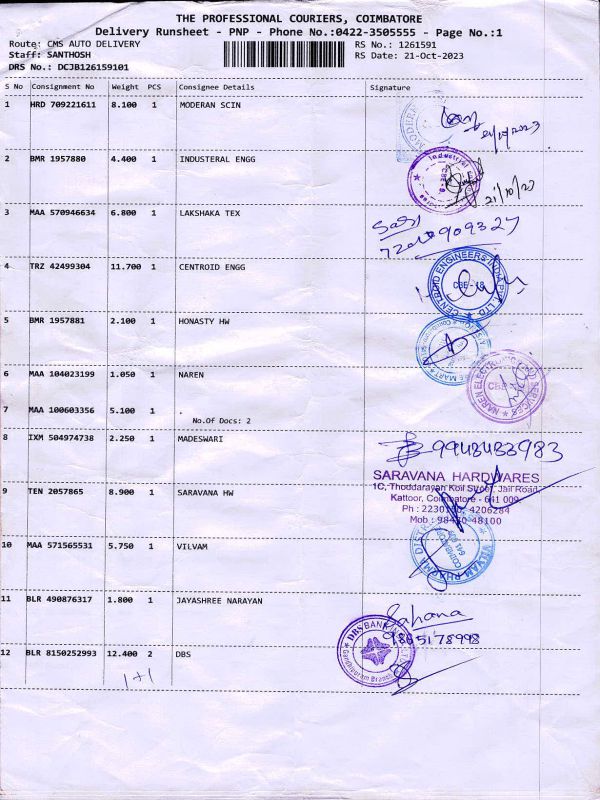 THE PROFESSIONAL COURIERS, COIMBATORE
Delivery Runsheet - PNP - Phone No.:0422-3505555 - Page No.:1
Route: CMS AUTO DELIVERY
RS No.: 1261591
Staff: SANTHOSH
RS Date: 21-Oct-2023
DRS No.: DCJB126159101
S No Consignment No Weight PCS Consignee Details Signature
1 HRD 709221611 8.100 1 MODERAN SCIN
21/10/2023
2 BMR 1957880 4.400 1 INDUSTERAL ENGG
Industrial
21/10/23
3 MAA 570946634 6.800 1 LAKSHAKA TEX
4 TRZ 42499304 11.700 1 CENTROID ENGG
CENTROID ENGINEERS INDIA PVT. LTD
CBE - 18
5 BMR 1957881 2.100 1 HONASTY HW
6 MAA 104023199 1.050 1 NAREN
NAREN ELECTRONICS SERVICES
7 MAA 100603356 5.100 1 .
No.Of Docs: 2
8 IXM 504974738 2.250 1 MADESWARI
SARAVANA HARDWARES
1C, Thoddarayan Koil Street, Jail Road,
Kattoor, Coimbatore - 641 009.
9 TEN 2057865 8.900 1 SARAVANA HW
10 MAA 571565531 5.750 1 VILVAM
11 BLR 490876317 1.800 1 JAYASHREE NARAYAN
Sahana
9865178998
12 BLR 8150252993 12.400 2 DBS
DBS BANK
Gandhipuram Branch
1+1